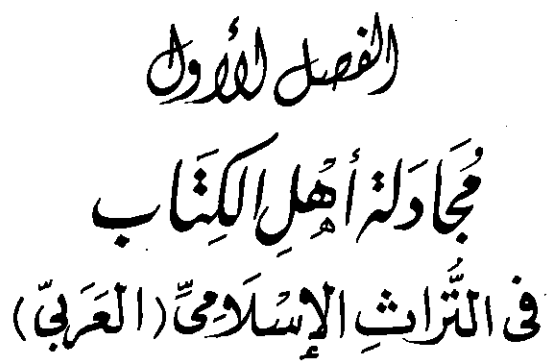 الفصل الأول
مُجَادَلَة أَهْلِ الكِتَاب
فى التُّرَاثِ الإِسْلَامِىِّ (العَرَبىّ)